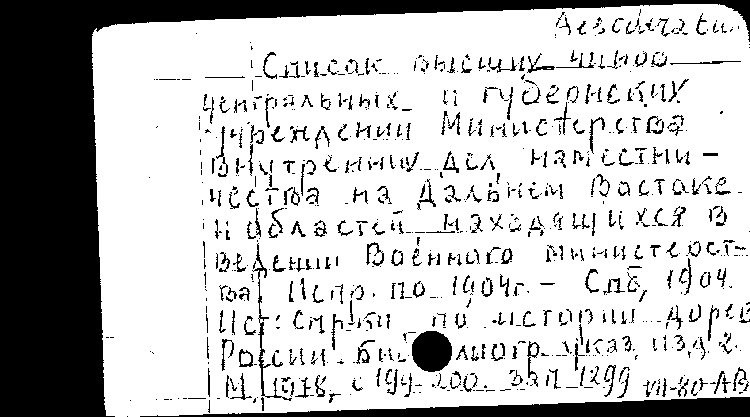 Desideratu
Список высших чинов
центральных и губернских
учреждений Министерства
внутренних дел, наместни-
чества на Дальнем Востоке
и областей, находящихся в
ведении Военного министерст-
ва. Испр. по 1904г. - Спб, 1904.
Ист: Спр-ки по истории дорев
России. Биб лиогр. указ. изд 2.
М, 1978, с 199-200. зап 1299 VII-80-АВ